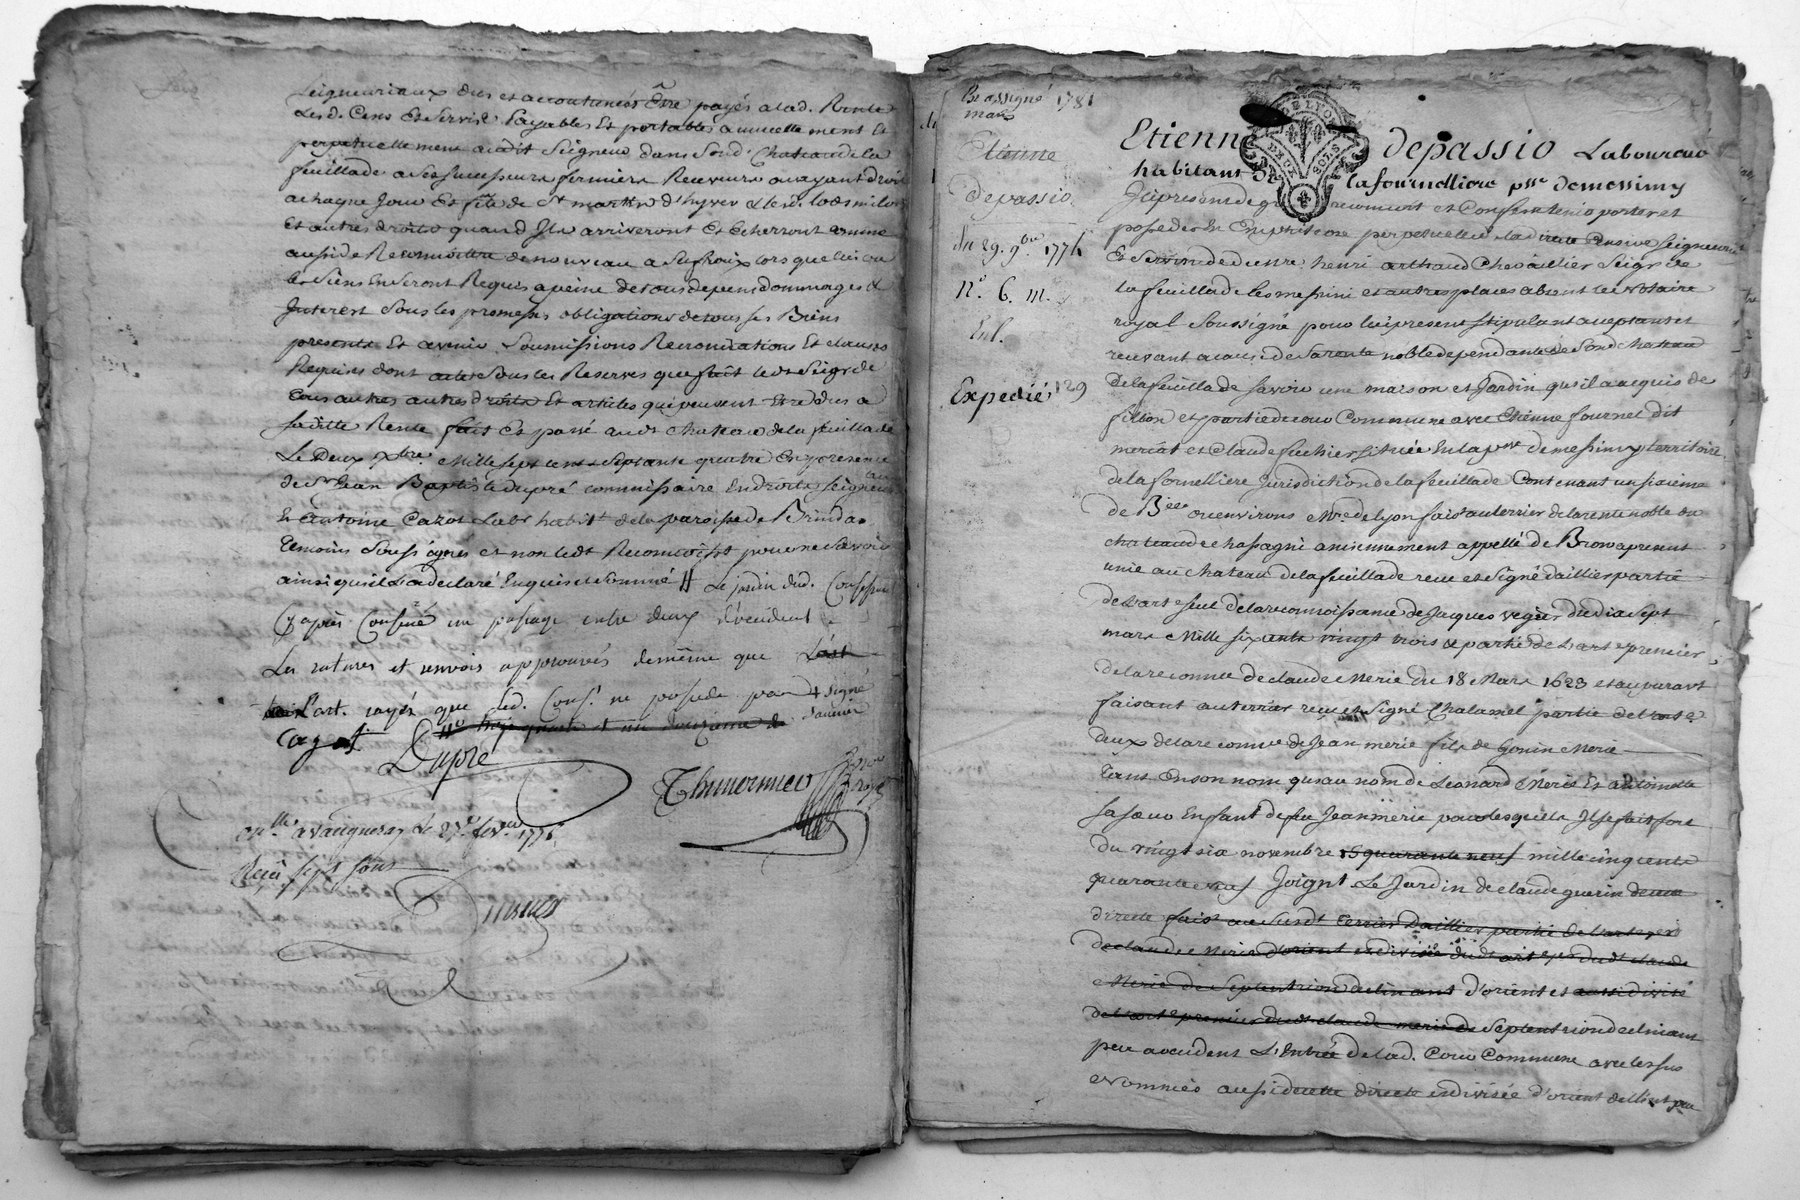 Seigneuriaux dus et accoutumés Être payés a lad. Rente
Lesd. Cens Et Servis Payables Et portables annuellement Et
perpetuellement audit Seigneur dans Sond. Chateau de la
feuillade a Ses Successeurs fermiers Receveurs ou ayant droit
a chaque Jour Et fête de St martin d'hyver Et lesd. lods milods
et autres droits quand Ils arriveront Et Echerront comme
aussi de Reconnoître de nouveau a Ses fraix lors que lui ou
les Siens En Seront Requis a peine de tous depens dommages &
Interest Sous les promesses obligations de tous ses Biens
presents Et avenir Soumissions Renonciations Et clauses
Requises dont acte Sous les Reserves que fait ledt Seigr de
Tous autres droits Et articles qui peuvent Etre dus a
saditte Rente fait Et passé audt chateau de la feuillade
Le Deux Xbre Mille Sept cent Septante quatre En presence
de Sr Jean Baptiste dupré commissaire En droits Seigneuriaux
Et Antoine Cazot Labr habitt de la paroisse de Brindas
Temoins Soussignés et non ledt Reconnoisst pour ne Savoir
ainsi qu'il L'a declaré Enquis et Sommé # Le jardin dud. Confessant
Cy après Confiné un passage entre deux d'occident
Les ratures et renvois approuvés de même que L'art
L'art. rayés que led. Conf. ne possede pas # signé
Cazot Dupré
Thimonnier
Conllé a vaugneray Le 27e fevrier 1775
Reçu sept sous
Exassigné 1781
mars
Etienne
Depassio
du 29. 9bre 1776
N° 6. m.
Expedié 129
Etienne Depassio Laboureur
habitant De la fournelliere psse de messimy
GENE DE LYON
DEUX SOLS
Et Servis de dience henri arthaud Chevallier Seigr de
la feuillade les messimi et autres places absent le notaire
royal Soussigné pour lui present Stipulant acceptant et
recevant a cause de Sa rente noble dependante de Sond chateau
De la feuillade Savoir une maison et Jardin qu'il a acquis de
fillon et partie de cour Commune avec Etienne fournel dit
merat et Claude fuchier située En la psse de messimy territoire
de la fornelliere Jurisdiction de la feuillade Contenant un sixieme
De Bée ou environs Mre de lyon faist au terrier de la rente noble du
chateau de chassagne anciennement appellé de Bron a present
unie au chateau de la feuillade reçu et Signé daillier partie
de L'art Seul de la reconnoissance de Jacques vegier du dix Sept
mars Mille Six cents vingt trois Et partie de L'art premier
de la reconnce de claude Merie du 18 Mars 1623 et auparavt
faisant au terrier reçu et Signé Chalamel partie de L'art
Deux de la reconnce de Jean merie fils de Gonin Merie
Tant En son nom qu'au nom de Leonard Merie Et antoinette
Sa Sœur Enfant de feu Jean merie pour lesquels Il se fait fort
du vingt Six novembre mille cinq cents
quarante neuf Joignt Le Jardin de claude guerin
directe faist au Susdt Terrier Daillier partie de L'art 1er
de claude Merie d'orient indivisée dudt art 1er dudt claude
Merie de Septentrion declinant d'orient et aussi divisé
de L'art premier dudt claude merie de Septentrion declinant
peu a occident L'Entrée de lad. Cour Commune avec les sus
nommés aussi de cette directe indivisée d'orient declint peu